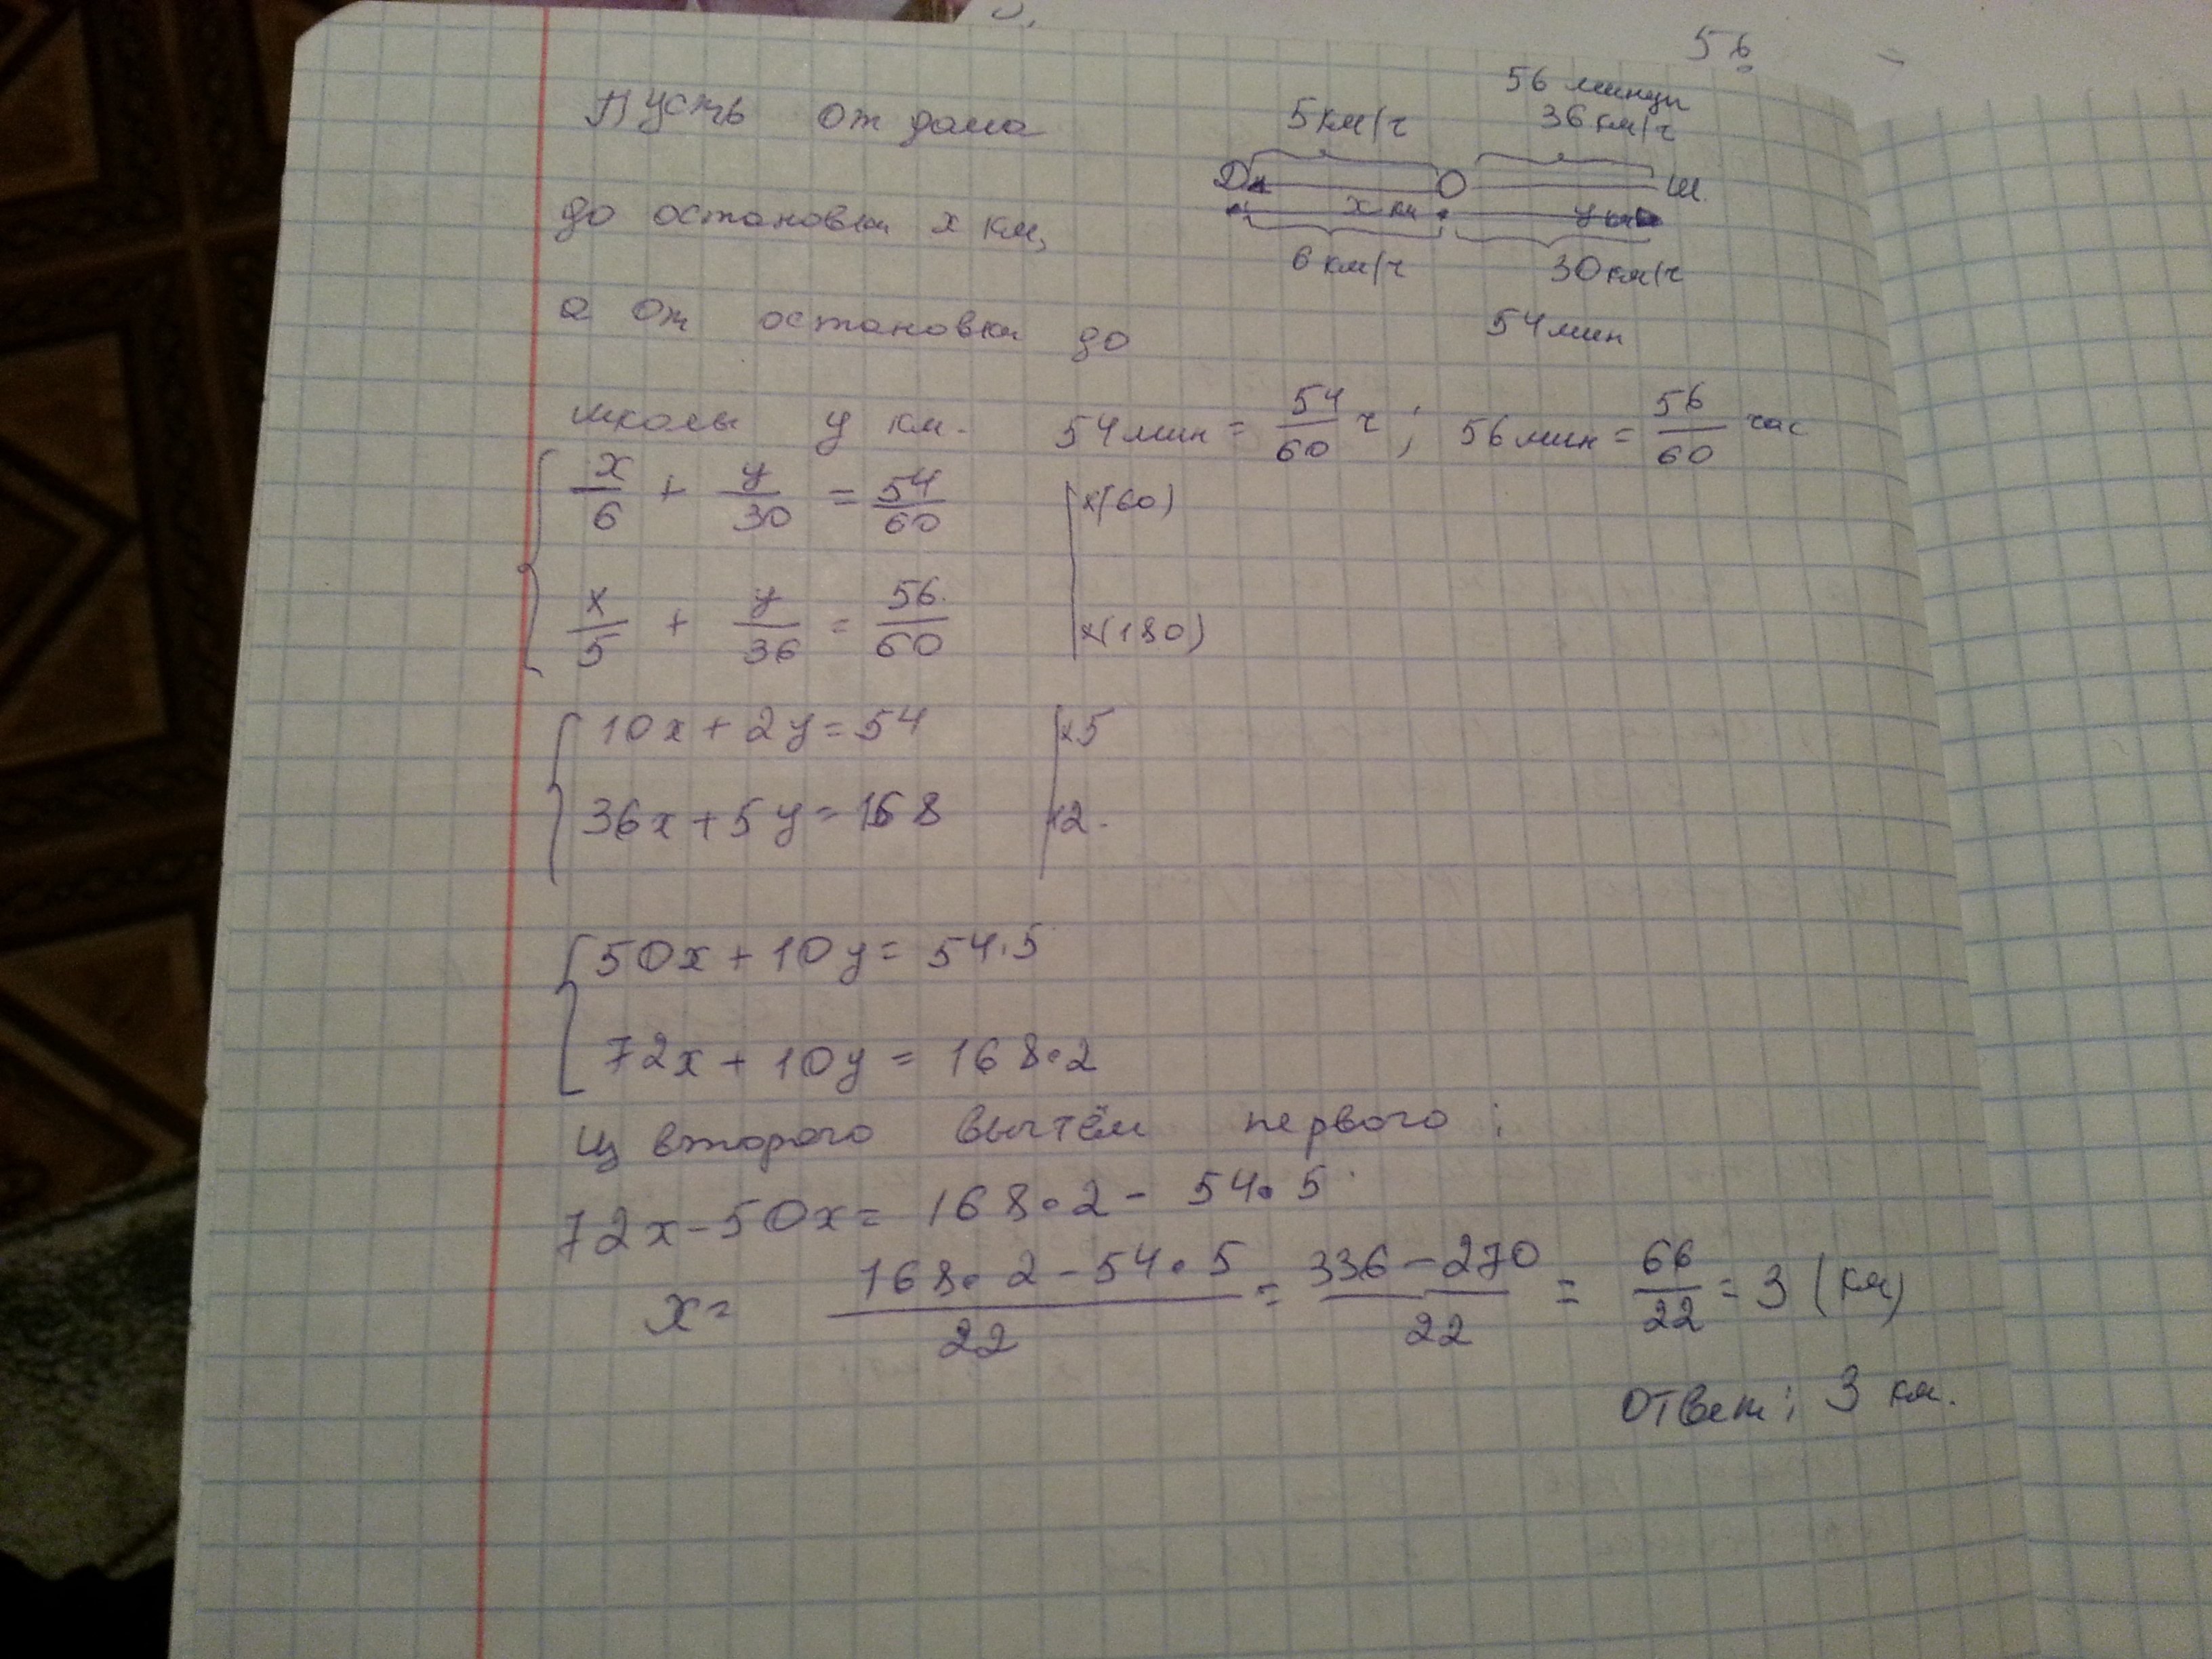 56
Пусть от дома
до остановки x км,
а от остановки до
школы y км.
56 минут
5 км/ч 36 км/ч
Д О Ш.
x км y км
6 км/ч 30 км/ч
54 мин
54 мин = 54/60 ч ; 56 мин = 56/60 час
x/6 + y/30 = 54/60 | x(60)
x/5 + y/36 = 56/60 | x(180)
10x + 2y = 54 | x5
36x + 5y = 168 | x2
50x + 10y = 54·5
72x + 10y = 168·2
Из второго вычтём первого:
72x - 50x = 168·2 - 54·5
x = (168·2 - 54·5)/22 = (336 - 270)/22 = 66/22 = 3 (км)
Ответ: 3 км.